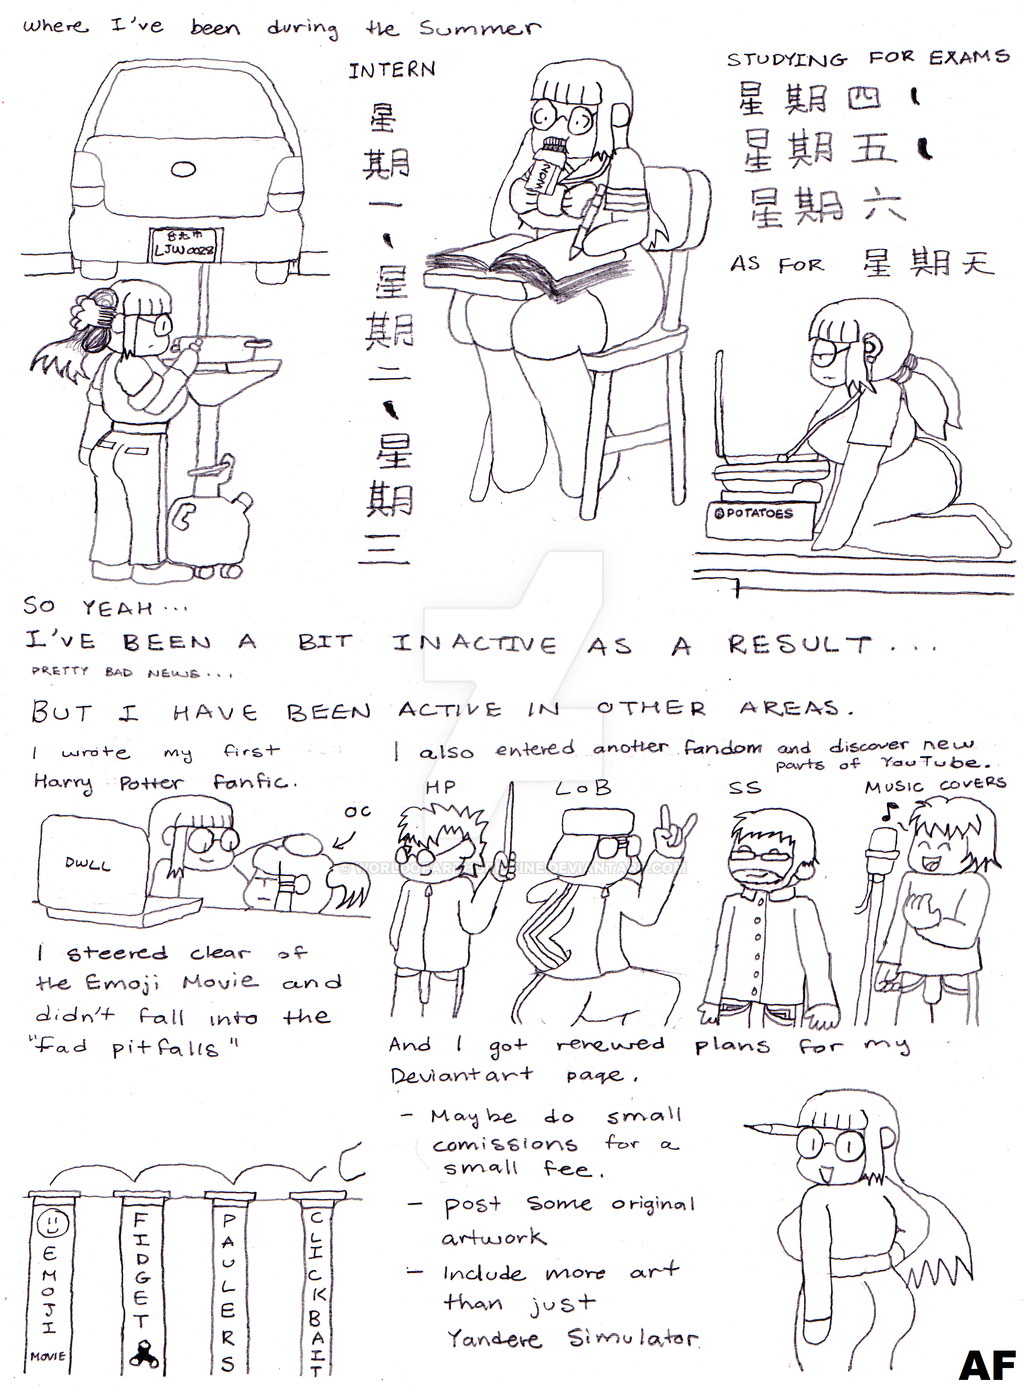 where I've been during the Summer
INTERN
星
期
一
、
星
期
二
、
星
期
三
台北市
LJW 0028
NOM
STUDYING FOR EXAMS
星期四、
星期五、
星期六
AS FOR 星期天
POTATOES
SO YEAH...
I'VE BEEN A BIT INACTIVE AS A RESULT...
PRETTY BAD NEWS...
BUT I HAVE BEEN ACTIVE IN OTHER AREAS.
I wrote my first
Harry Potter fanfic.
OC
DWLL
I steered clear of
the Emoji Movie and
didn't fall into the
"fad pitfalls"
EMOJI
MOVIE
FIDGET
PAULERS
CLICKBAIT
I also entered another fandom and discover new
parts of YouTube.
HP
LoB
SS
MUSIC COVERS
And I got renewed plans for my
Deviantart page.
- Maybe do small
comissions for a
small fee.
- post some original
artwork
- Include more art
than just
Yandere Simulator
AF